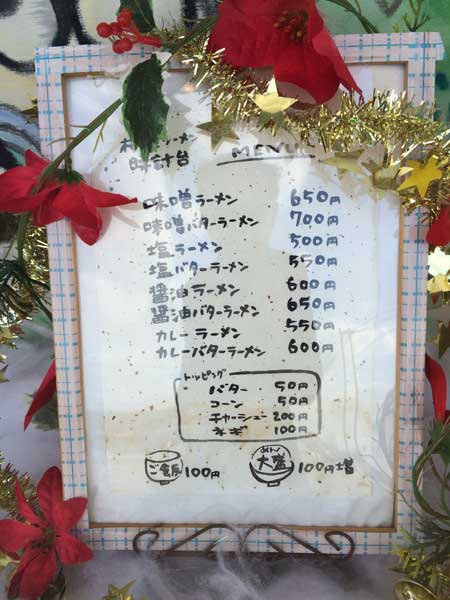 ラーメン
時計台
MENU
味噌ラーメン 650円
味噌バターラーメン 700円
塩ラーメン 500円
塩バターラーメン 550円
醤油ラーメン 600円
醤油バターラーメン 650円
カレーラーメン 550円
カレーバターラーメン 600円
トッピング
バター 50円
コーン 50円
チャーシュー 200円
ネギ 100円
ご飯 100円
めん 大盛 100円増